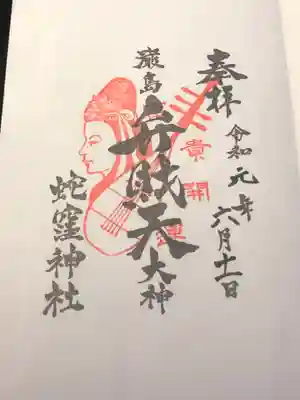 奉拝
令和元年六月十一日
貴
開運
巌島
弁財天
大神
蛇窪神社